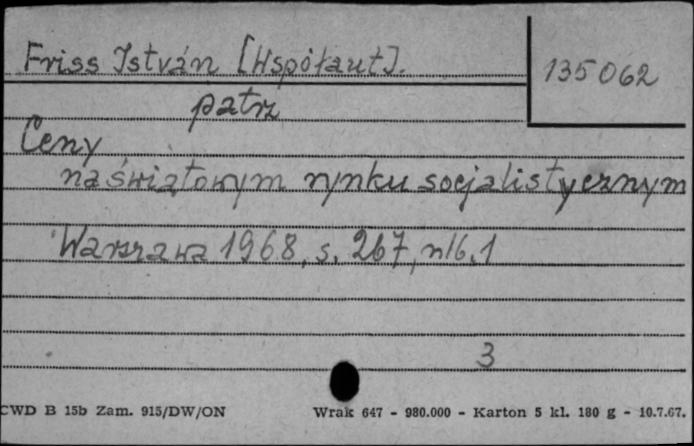 Friss István [Współaut].
135062
patrz
Ceny
na światowym rynku socjalistycznym
Warszawa 1968, s. 267, nlb. 1
3
CWD B 15b Zam. 915/DW/ON
Wrak 647 - 980.000 - Karton 5 kl. 180 g - 10.7.67.